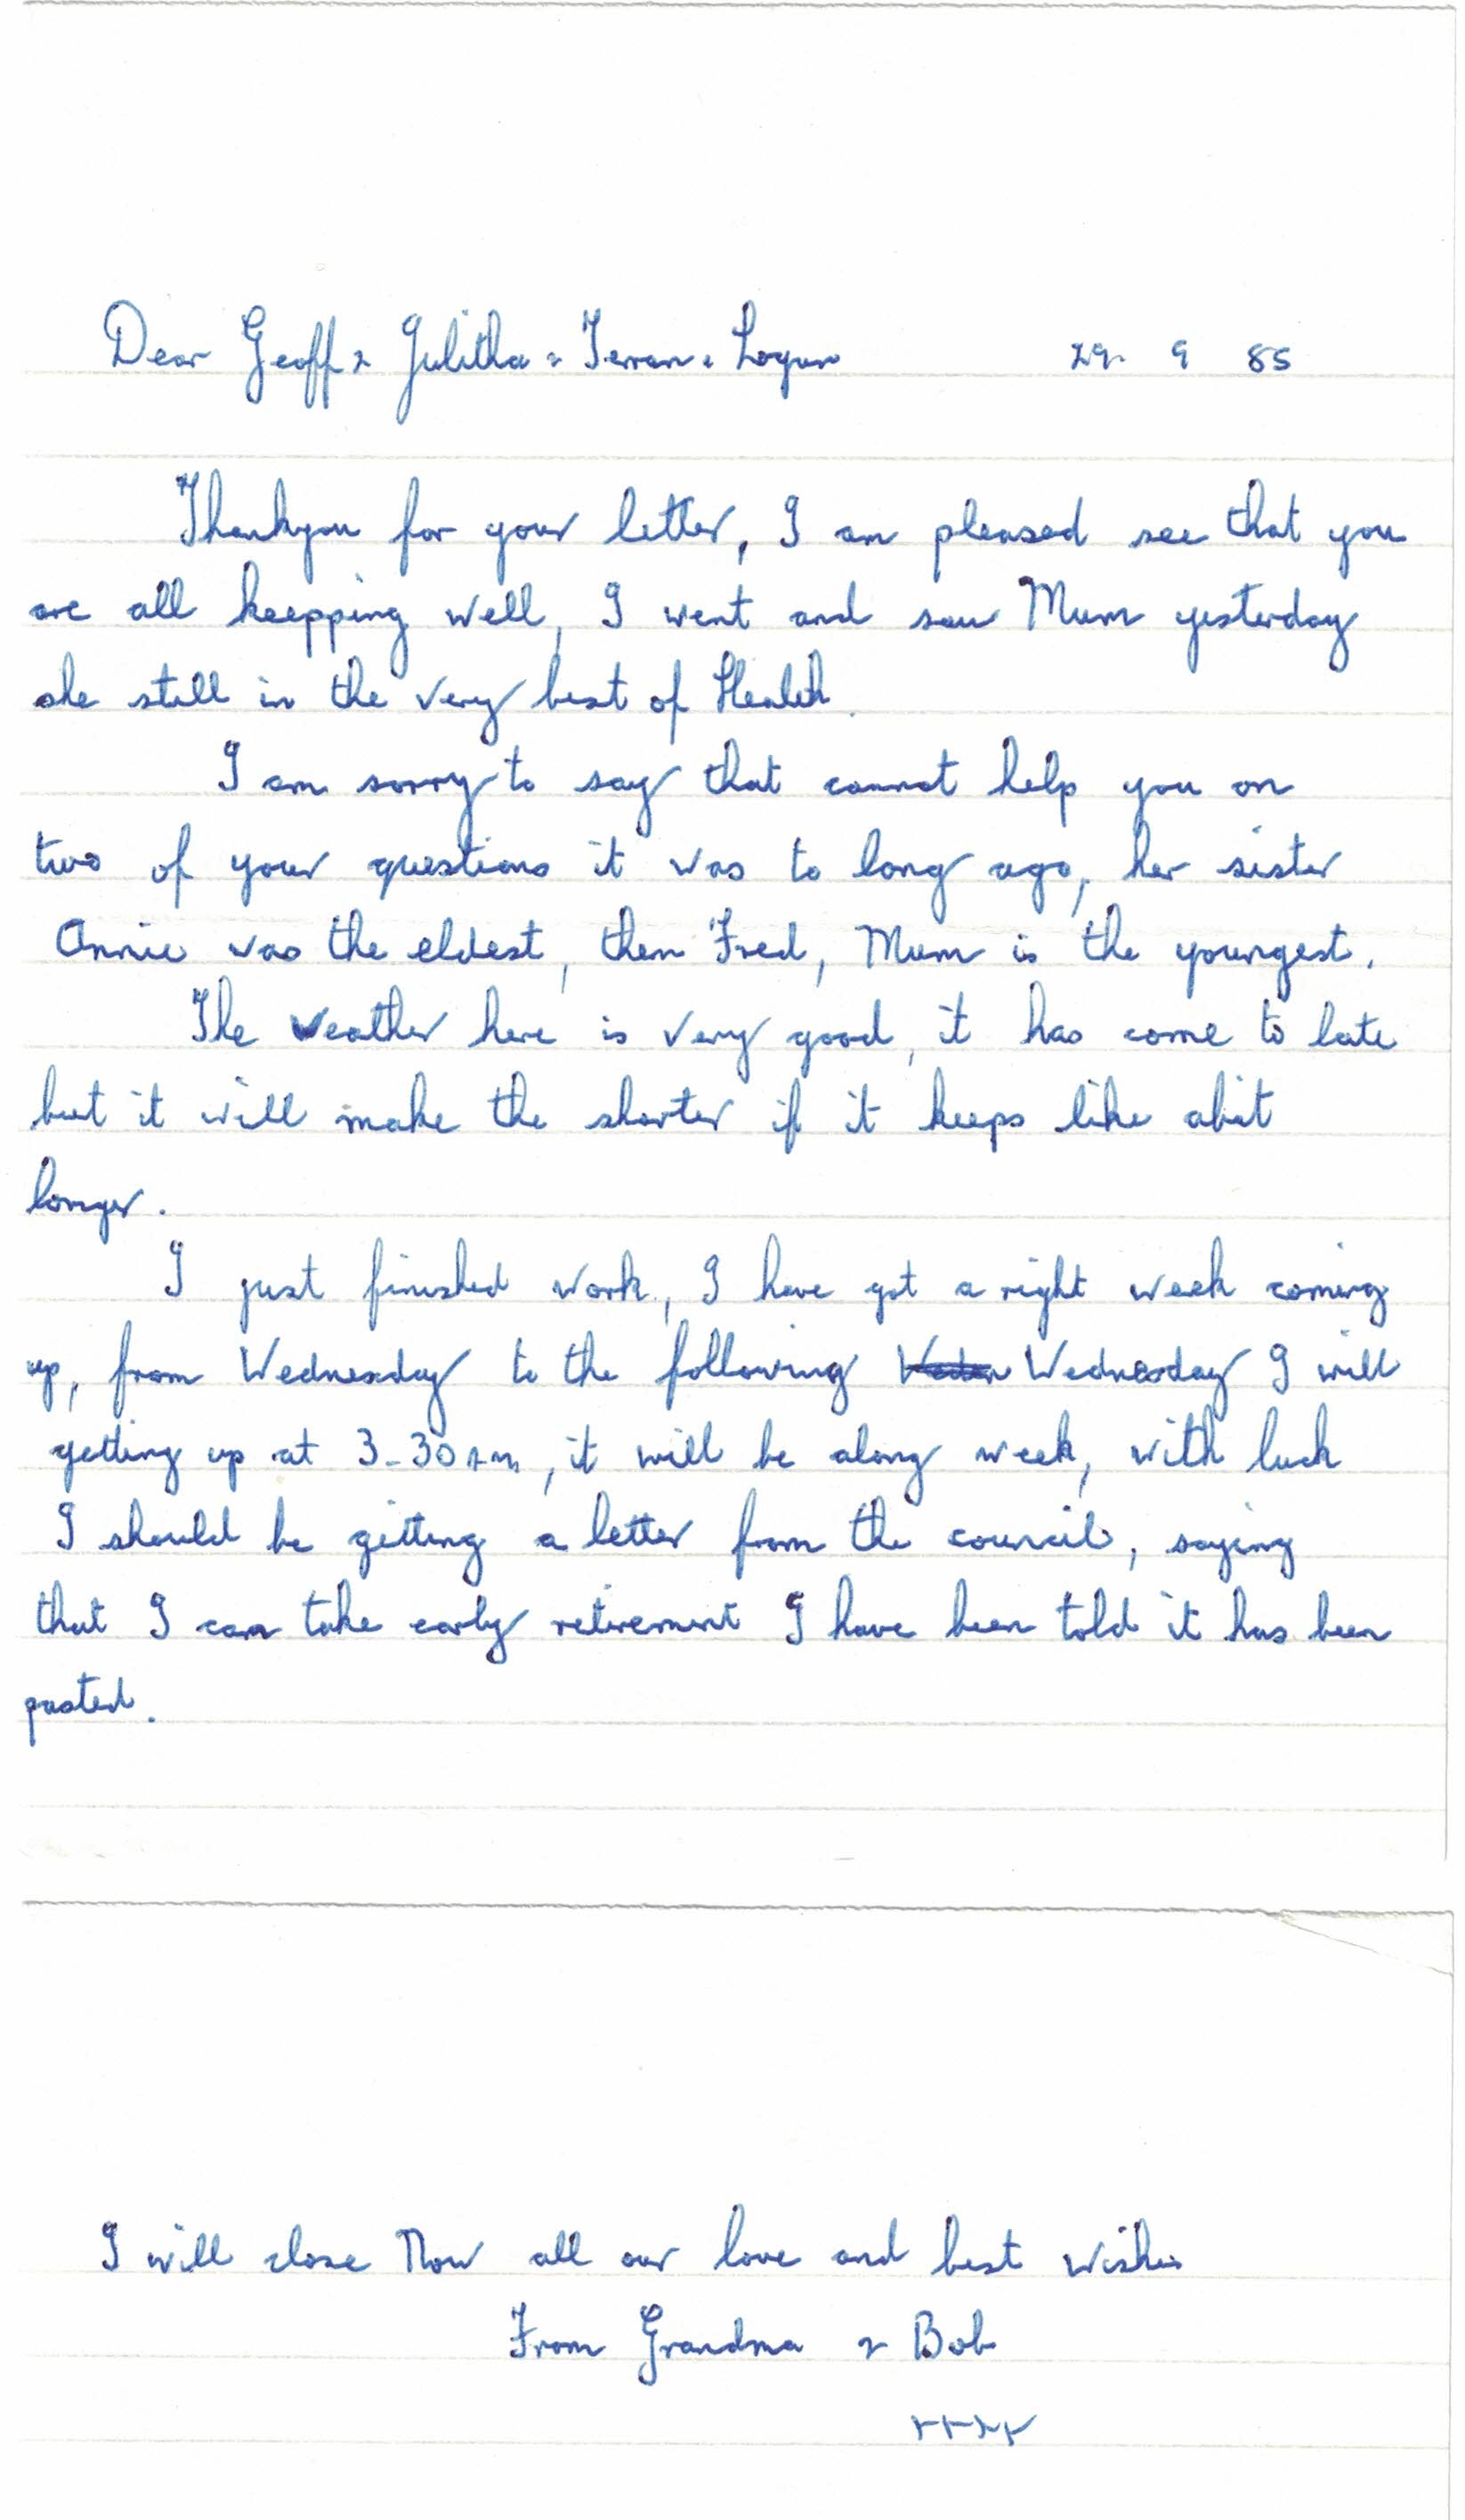 Dear Geoff & Julitha & Terran & Logan 29. 9 85
Thankyou for your letter, I am pleased see that you
are all keepping well, I went and saw Mum yesterday
she still in the very best of Health.
I am sorry to say that cannot help you on
two of your questions it was to long ago, her sister
Annie was the eldest, then Fred, Mum is the youngest.
The weather here is very good, it has come to late
but it will make the shorter if it keeps like abit
longer.
I just finished work, I have got a right week coming
up, from Wednesday to the following Wednesday I will
getting up at 3-30am, it will be along week, with luck
I should be getting a letter from the council, saying
that I can take early retirement I have been told it has been
posted.
I will close Now all our love and best wishes
From Grandma & Bob
xxxx